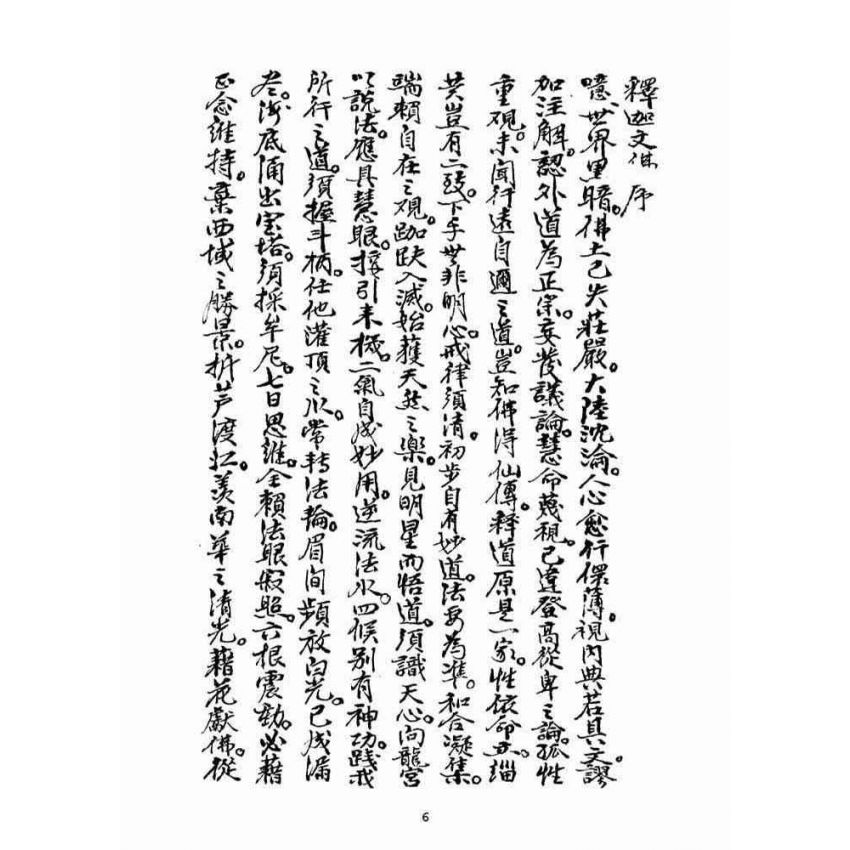 釋迦文佛 序
噫、世界黑暗。佛土已失莊嚴。大陸沈淪。人心愈行僳薄。視內典若具文。謬
加注解。認外道為正宗。妄發議論。慧命蔑視。已違登高從卑之論。孤性
重觀。未聞行遠自邇之道。豈知佛得仙傳。釋道原是一家。性依命立。緇
黃豈有二致。下手無非明心。戒律須清。初步自有妙道。法要為準。和合凝集。
端賴自在之觀。跏趺入滅。始獲天然之樂。見明星而悟道。須識天心。向龍宮
以說法。應具慧眼。接引來機。二氣自成妙用。逆流法水。四候别有神功。踐戒
所行之道。須握斗柄。任他灌頂之水。常轉法輪。眉間頻放白光。已成漏
盡。海底涌出宝塔。須採牟尼。七日思維。全賴法眼寂照。六根震動。必藉
正念維持。棄西域之勝景。折芦渡江。羡南華之清光。藉花獻佛。從
6